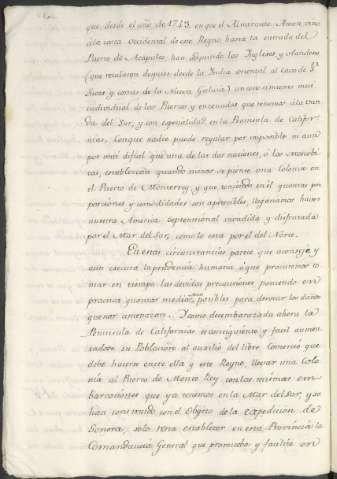 que, desde el año de 1743 en que el Almirante Anson vino
a la costa occidental de este Reyno, hasta la entrada del
Puerto de Acapulco, han adquirido los Ingleses, y Olandeses
(que
desde la India oriental al cavo de Sn
Lucas, y costas de la Nueva Galicia) conocimientos mas
individual de los Puertos, y ensenadas que tenemos a la
del Sur, y con especialidad en la Peninsula de Califor-
nias. Conque nadie puede regular por imposible ni aun
por mui dificil que una de las dos naciones, ó los Moscobi-
tas, establezcan quando menos se piense una Colonia en
el Puerto de Monterrey, y que teniendo en él quantas pro
porciones y comodidades son apetecibles, llegaramos haver
nuestra America septentrional invadida y disfrutada
por el Mar del Sur, como lo esta por el del Norte.
En estas circunstancias parece que aconseja, y
aun executa la prudencia humana á que procuremos to
mar en tiempo las devidas precauciones poniendo en
practica quantos medios sean posibles para desviar los daños
que nos amenazan. Y como desembarazada ahora la
Peninsula de Californias es consiguiente, y facil aumen
tando su Poblacion al auxilio del libre Comercio que
debe haverse entre ella y este Reyno, llevar una Colo
nia al Puerto de Monte Rey con las mismas em
barcaciones que ya tenemos en la Mar del Sur, y se
han construido con el objeto de la expedicion de
Sonora; solo resta establecer en esta Provincia la
Comandancia General que promueba y facilite en